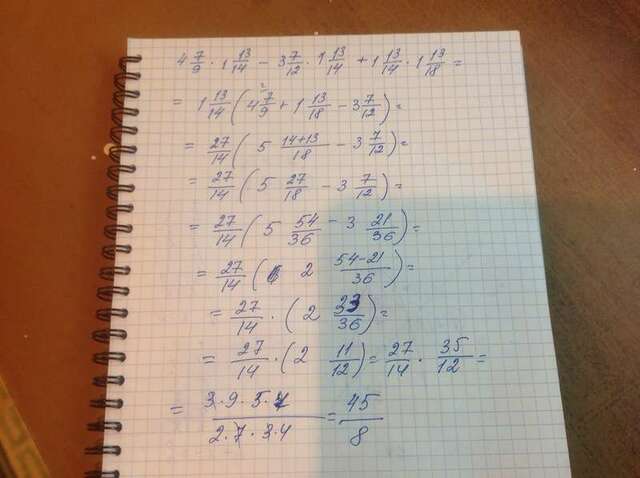 4 7/9 · 1 13/14 − 3 7/12 · 1 13/14 + 1 13/14 · 1 13/18 =
= 1 13/14 ( 4 7/9 + 1 13/18 − 3 7/12 ) =
= 27/14 ( 5 14+13/18 − 3 7/12 ) =
= 27/14 ( 5 27/18 − 3 7/12 ) =
= 27/14 ( 5 54/36 − 3 21/36 ) =
= 27/14 ( 2 54−21/36 ) =
= 27/14 · ( 2 33/36 ) =
= 27/14 · ( 2 11/12 ) = 27/14 · 35/12 =
= 3·9·5·7/2·7·3·4 = 45/8